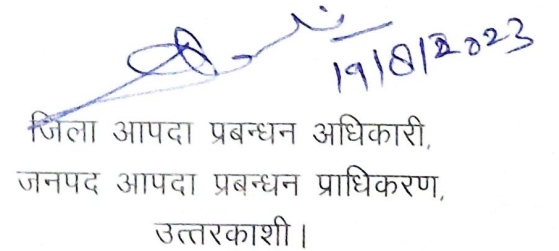 19/8/2023
जिला आपदा प्रबन्धन अधिकारी,
जनपद आपदा प्रबन्धन प्राधिकरण,
उत्तरकाशी।